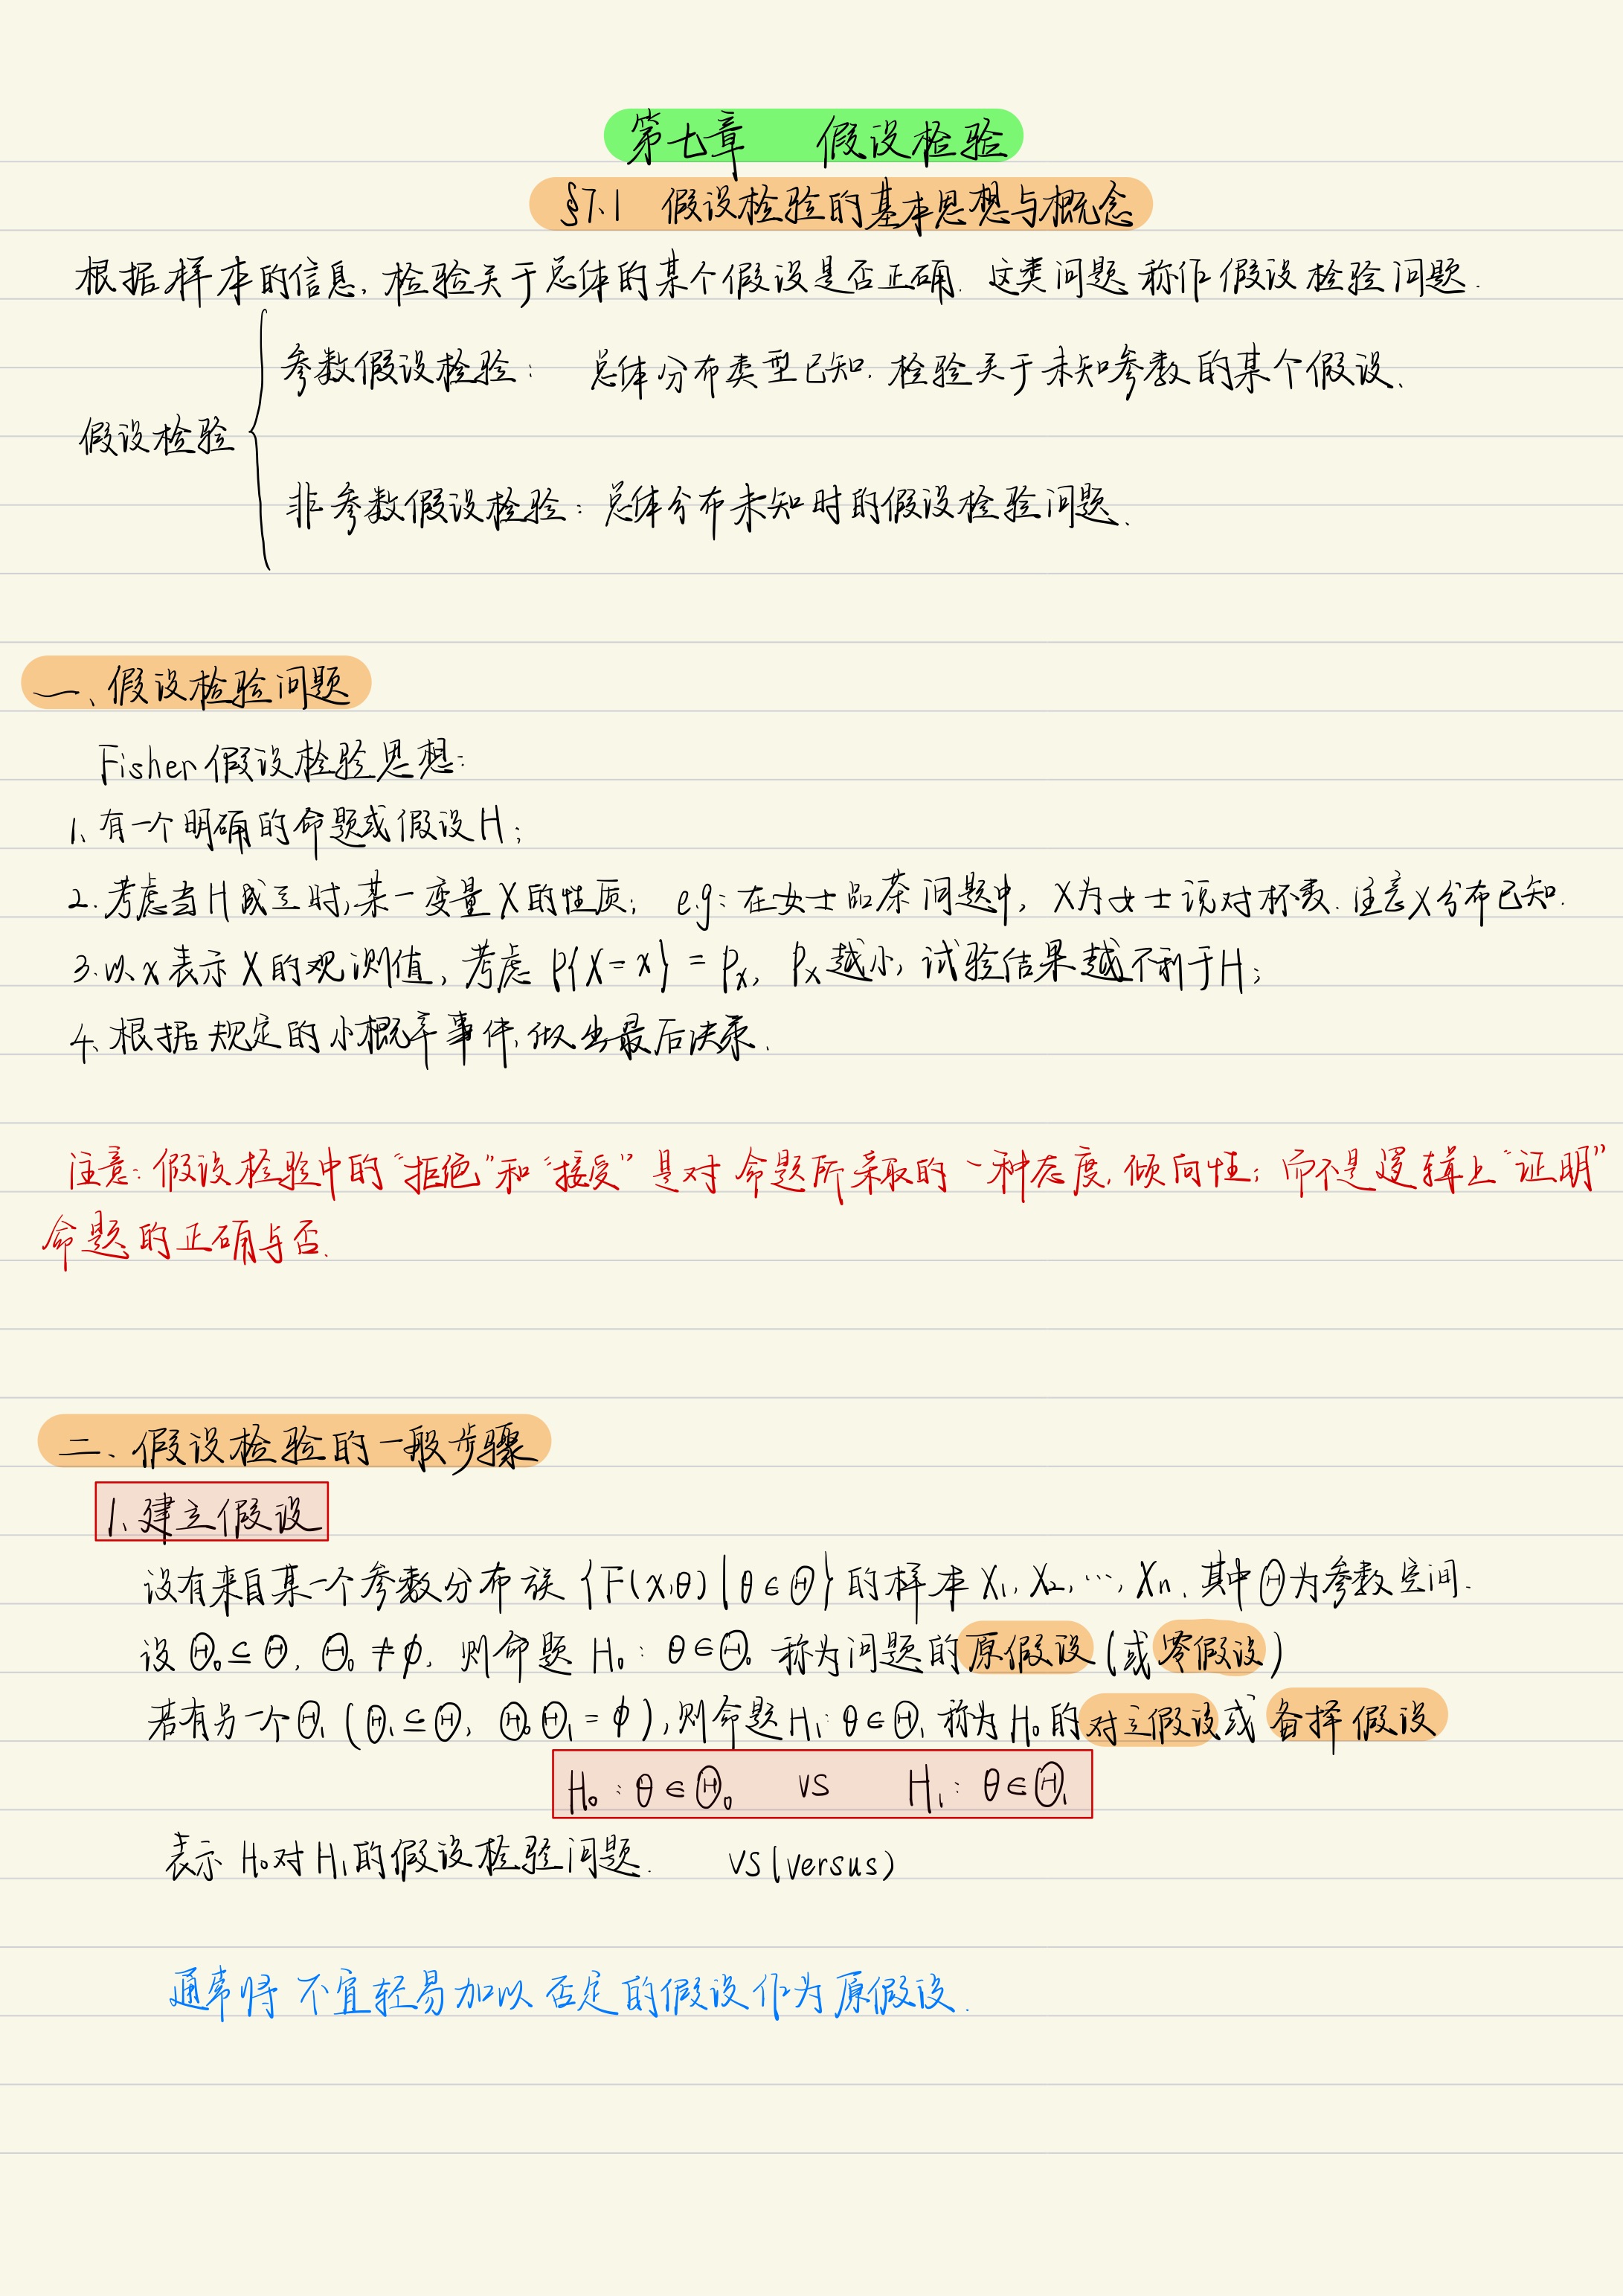 第七章 假设检验
§7.1 假设检验的基本思想与概念
根据样本的信息, 检验关于总体的某个假设是否正确. 这类问题 称作 假设检验问题.
参数假设检验: 总体分布类型已知. 检验关于未知参数的某个假设、
假设检验
非参数假设检验: 总体分布未知时的假设检验问题、
一、假设检验问题
Fisher假设检验思想:
1、有一个明确的命题或假设H;
2.考虑当H成立时,某一变量X的性质; e.g: 在女士品茶问题中, X为女士说对杯数. 注意X分布已知.
3.以x表示X的观测值, 考虑 P{X=x} = Px, Px越小, 试验结果越不利于H;
4、根据规定的小概率事件,做出最后决策.
注意: 假设检验中的“拒绝”和“接受”是对命题所采取的一种态度, 倾向性; 而不是逻辑上“证明”
命题的正确与否.
二、假设检验的一般步骤
1、建立假设
设有来自某一个参数分布族 {F(x,θ)|θ∈Θ}的样本X₁, X₂, ⋯, Xn. 其中Θ为参数空间.
设Θ₀⊆Θ, Θ₀≠∅, 则命题 H₀: θ∈Θ₀ 称为问题的原假设(或零假设)
若有另一个Θ₁(Θ₁⊆Θ, Θ₀Θ₁=∅),则命题H₁: θ∈Θ₁ 称为H₀的对立假设或 备择假设
H₀: θ∈Θ₀ VS H₁: θ∈Θ₁
表示 H₀对H₁的假设检验问题. VS(versus)
通常将 不宜轻易加以 否定的假设作为原假设.